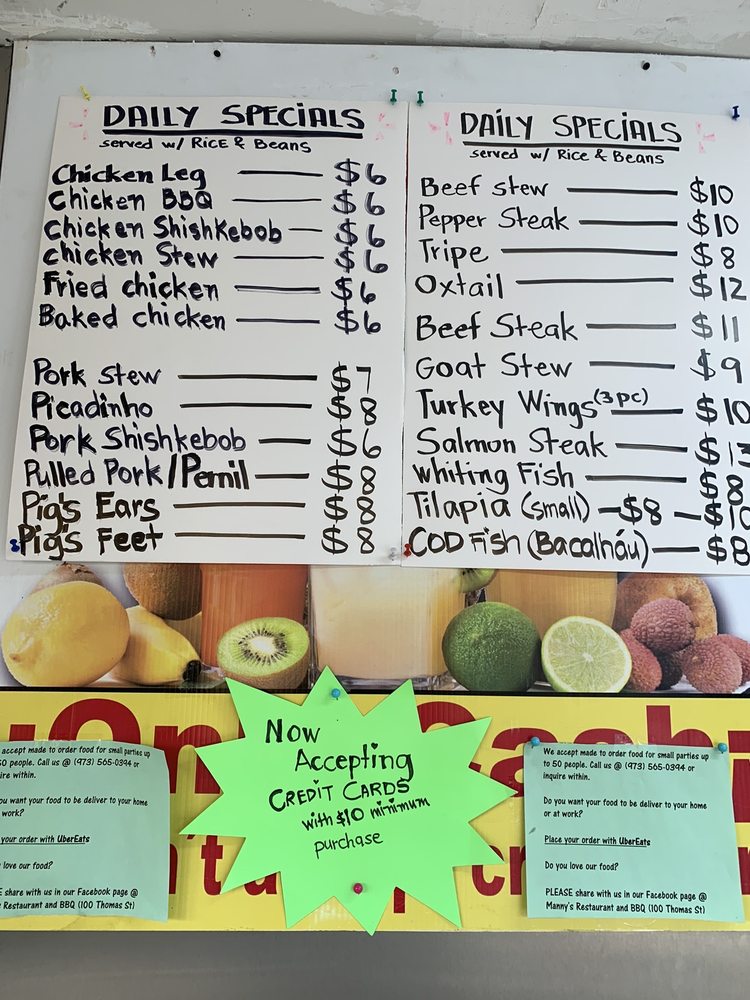 DAILY SPECIALS
served w/ Rice & Beans
Chicken Leg $6
Chicken BBQ $6
Chicken Shishkebob $6
Chicken Stew $6
Fried chicken $6
Baked chicken $6
Pork Stew $7
Picadinho $8
Pork Shishkebob $6
Pulled Pork/Pernil $8
Pig's Ears $8
Pig's Feet $8
DAILY SPECIALS
served w/ Rice & Beans
Beef stew $10
Pepper Steak $10
Tripe $8
Oxtail $12
Beef Steak $11
Goat Stew $9
Turkey Wings (3pc) $10
Salmon Steak $13
Whiting Fish $8
Tilapia (small) $8 $10
COD Fish (Bacalháu) $8
accept made to order food for small parties up
50 people. Call us @ (973) 565-0394 or
within.
want your food to be deliver to your home
work?
your order with UberEats
love our food?
share with us in our Facebook page @
Restaurant and BBQ (100 Thomas St)
Now
Accepting
CREDIT CARDS
with $10 minimum
purchase
We accept made to order food for small parties up
to 50 people. Call us @ (973) 565-0394 or
inquire within.
Do you want your food to be deliver to your home
or at work?
Place your order with UberEats
Do you love our food?
PLEASE share with us in our Facebook page @
Manny's Restaurant and BBQ (100 Thomas St)